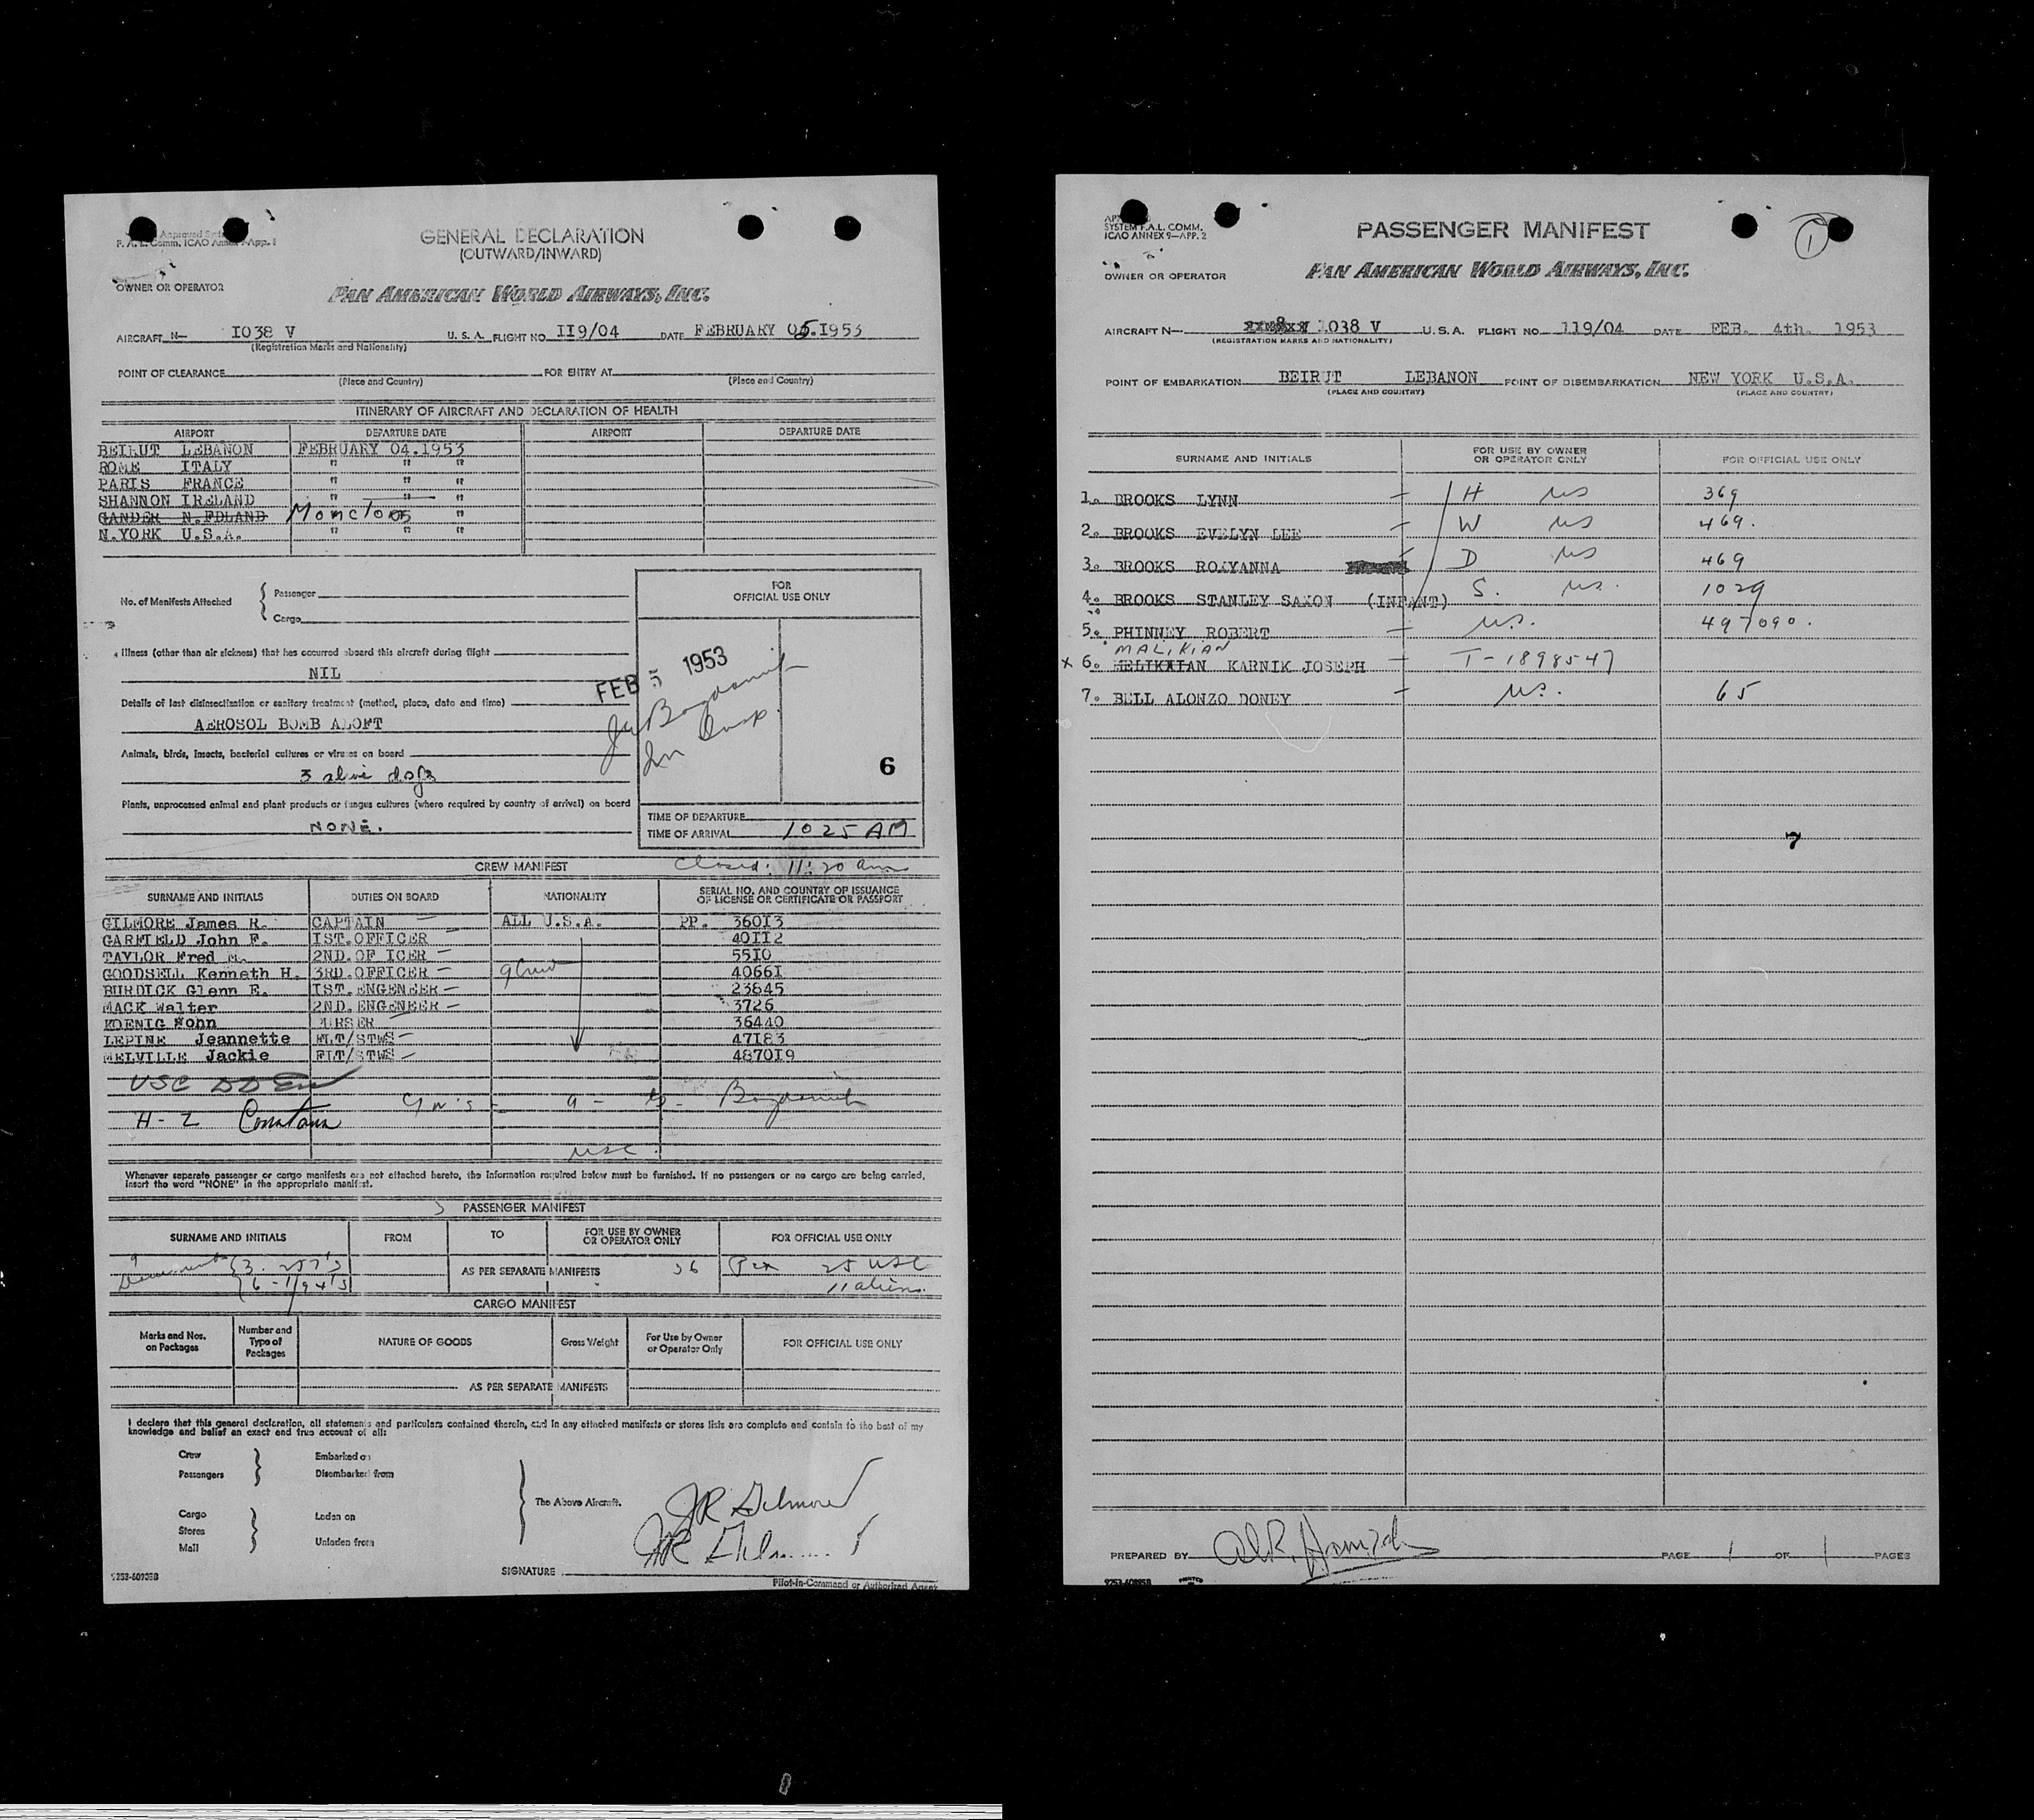 Approved System
F. A. L. Comm. ICAO Annex 9-App. 1
GENERAL DECLARATION
(OUTWARD/INWARD)
OWNER OR OPERATOR
PAN AMERICAN WORLD AIRWAYS, INC.
AIRCRAFT N— I038 V U. S. A. FLIGHT NO. II9/04 DATE FEBRUARY 05.I953
(Registration Marks and Nationality)
POINT OF CLEARANCE FOR ENTRY AT
(Place and Country) (Place and Country)
ITINERARY OF AIRCRAFT AND DECLARATION OF HEALTH
AIRPORT DEPARTURE DATE AIRPORT DEPARTURE DATE
BEIRUT LEBANON FEBRUARY 04.1953
ROME ITALY " " "
PARIS FRANCE " " "
SHANNON IRELAND " " "
GANDER N.FDLAND Moncton 05 "
N.YORK U.S.A. " " "
No. of Manifests Attached
Passenger
Cargo
FOR
OFFICIAL USE ONLY
Illness (other than air sickness) that has occurred aboard this aircraft during flight
NIL
FEB 5 1953
Details of last disinsectization or sanitary treatment (method, place, date and time)
AEROSOL BOMB ALOFT
Im Insp.
Animals, birds, insects, bacterial cultures or viruses on board
3 alive dogs
6
Plants, unprocessed animal and plant products or fungus cultures (where required by country of arrival) on board
NONE.
TIME OF DEPARTURE
TIME OF ARRIVAL 1025 AM
CREW MANIFEST Closed: 11:20 am
SURNAME AND INITIALS DUTIES ON BOARD NATIONALITY SERIAL NO. AND COUNTRY OF ISSUANCE
OF LICENSE OR CERTIFICATE OR PASSPORT
GILMORE James R. CAPTAIN ALL U.S.A. PP. 36013
GARFIELD John F. IST.OFFICER 40II2
TAYLOR Fred M. 2ND.OF ICER 55I0
GOODSELL Kenneth H. 3RD.OFFICER 9 Crew 4066I
BURDICK Glenn E. IST.ENGENEER 23645
MACK Walter 2ND.ENGENEER 3726
KOENIG John PURSER 36440
LEPINE Jeannette FLT/STWS 47I83
MELVILLE Jackie FLT/STWS 4870I9
USC
H-Z
USC
Whenever separate passenger or cargo manifests are not attached hereto, the information required below must be furnished. If no passengers or no cargo are being carried,
insert the word "NONE" in the appropriate manifest.
PASSENGER MANIFEST
SURNAME AND INITIALS FROM TO FOR USE BY OWNER
OR OPERATOR ONLY FOR OFFICIAL USE ONLY
9
Documents 3-257's AS PER SEPARATE MANIFESTS 36 Pax 25 USC
6-I/94's 11 aliens
CARGO MANIFEST
Marks and Nos.
on Packages Number and
Type of
Packages NATURE OF GOODS Gross Weight For Use by Owner
or Operator Only FOR OFFICIAL USE ONLY
AS PER SEPARATE MANIFESTS
I declare that this general declaration, all statements and particulars contained therein, and in any attached manifests or stores lists are complete and contain to the best of my
knowledge and belief an exact and true account of all:
Crew Embarked on
Passengers Disembarked from
The Above Aircraft.
Cargo Laden on
Stores
Mail Unladen from
JR Gilmore
JR Gilmore
SIGNATURE
Pilot-in-Command or Authorized Agent
SYSTEM F.A.L. COMM.
ICAO ANNEX 9—APP. 2
PASSENGER MANIFEST
1
OWNER OR OPERATOR
PAN AMERICAN WORLD AIRWAYS, INC.
AIRCRAFT N— 1038 V U.S.A. FLIGHT NO. 119/04 DATE FEB. 4th. 1953
(REGISTRATION MARKS AND NATIONALITY)
POINT OF EMBARKATION BEIRUT LEBANON POINT OF DISEMBARKATION NEW YORK U.S.A.
(PLACE AND COUNTRY) (PLACE AND COUNTRY)
SURNAME AND INITIALS FOR USE BY OWNER
OR OPERATOR ONLY FOR OFFICIAL USE ONLY
1. BROOKS LYNN H US 369
2. BROOKS EVELYN LEE W US 469.
3. BROOKS ROXYANNA D US 469
4. BROOKS STANLEY SAXON (INFANT) S. US. 1029
5. PHINNEY ROBERT US. 497090.
MALIKIAN
x 6. MELIKIAN KARNIK JOSEPH T-1898547
7. BELL ALONZO DONEY US. 65
7
PREPARED BY PAGE 1 OF 1 PAGES